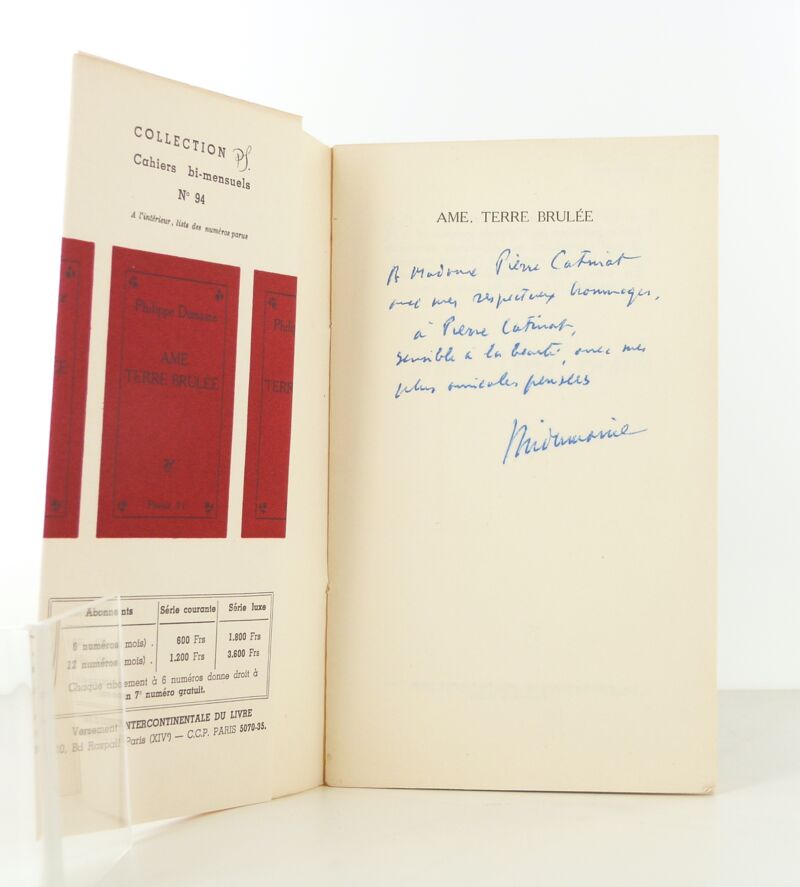 COLLECTION PS.
Cahiers bi-mensuels
N° 94
A l'intérieur, liste des numéros parus
Philippe Dumaine
AME
TERRE BRULÉE
Phili
TERR
Abonnements Série courante Série luxe
6 numéros mois) . 600 Frs 1.800 Frs
12 numéros mois) . 1.200 Frs 3.600 Frs
Chaque abonnement à 6 numéros donne droit à
un 7e numéro gratuit.
Versement INTERCONTINENTALE DU LIVRE
Bd Raspail Paris (XIVe) — C.C.P. PARIS 5070-35.
AME, TERRE BRULÉE
A Madame Pierre Catinat
avec mes respectueux hommages,
à Pierre Catinat,
sensible à la beauté, avec mes
plus amicales pensées